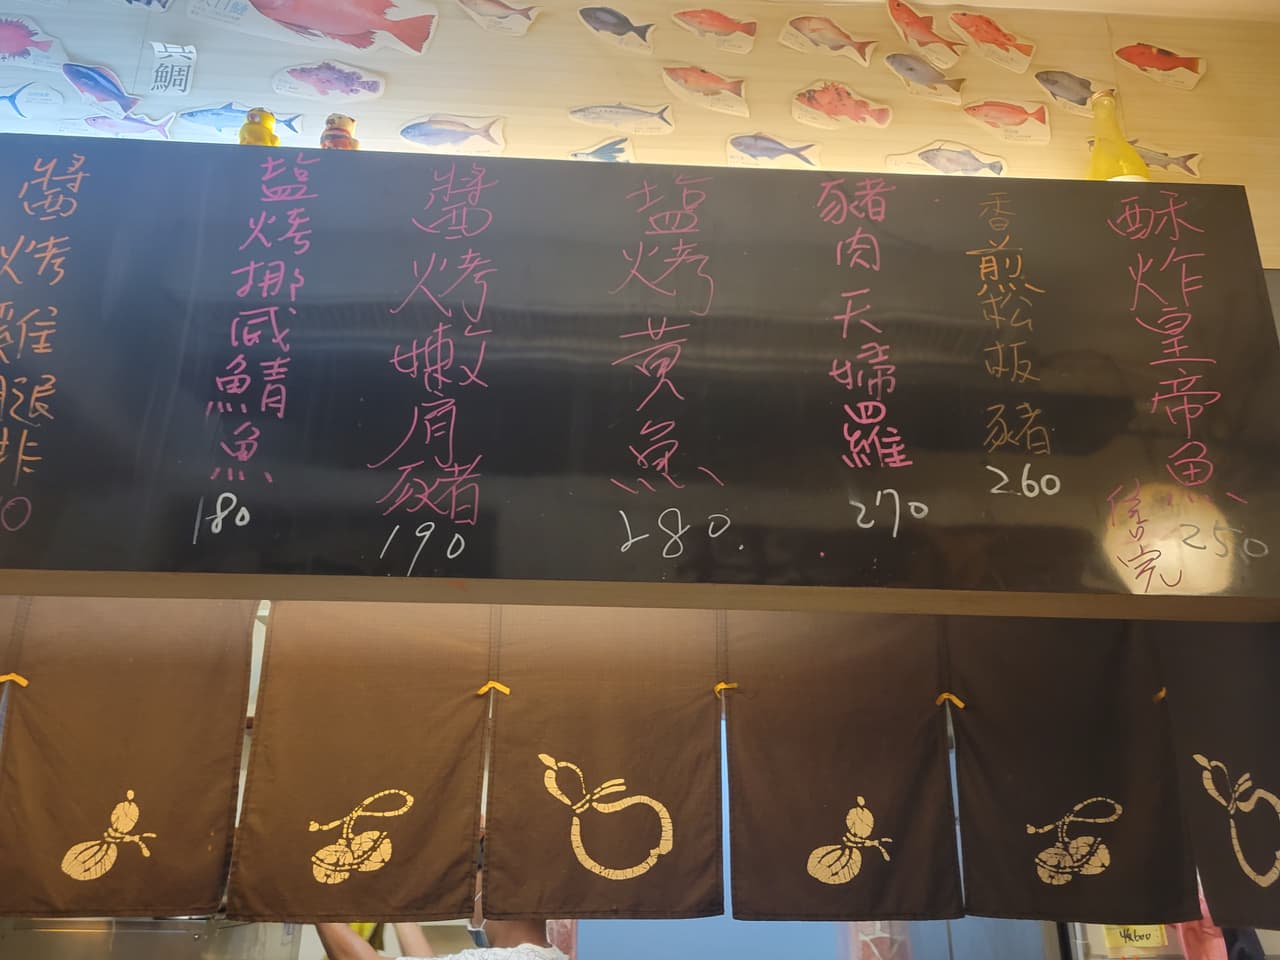 酥炸皇帝魚
售完
250
香煎松板豬
260
豬肉天婦羅
270
塩烤黃魚
280.
醬烤嫩肩豬
190
塩烤挪威鯖魚
180
醬烤雞腿排
0
真鯛